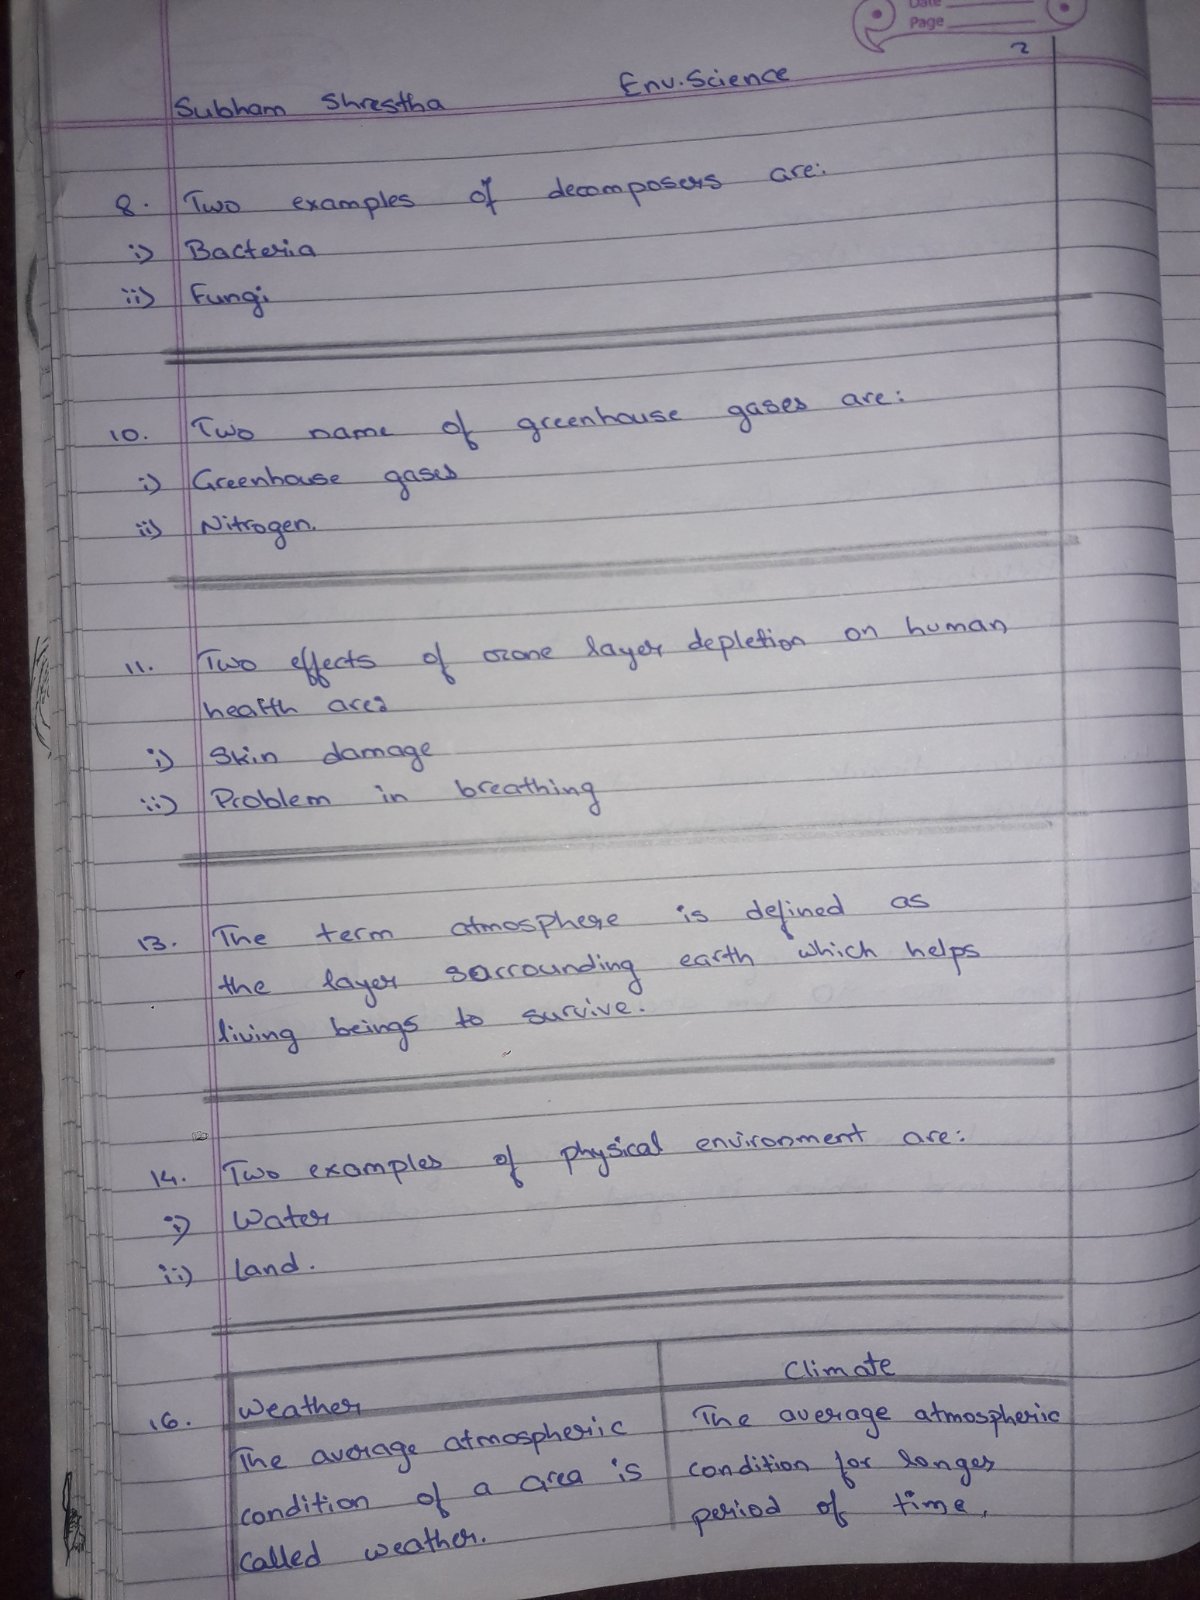 Date
Page
2
Subham Shrestha Env.Science
8. Two examples of decomposers are:
i) Bacteria
ii) Fungi
10. Two name of greenhouse gases are:
i) Greenhouse gases
ii) Nitrogen.
11. Two effects of ozone layer depletion on human
health are:
i) Skin damage
ii) Problem in breathing
13. The term atmosphere is defined as
the layer sarrounding earth which helps
living beings to survive.
14. Two examples of physical environment are:
i) Water
ii) Land.
16. Weather
The average atmospheric
condition of a area is
called weather.
Climate
The average atmospheric
condition for longer
period of time.